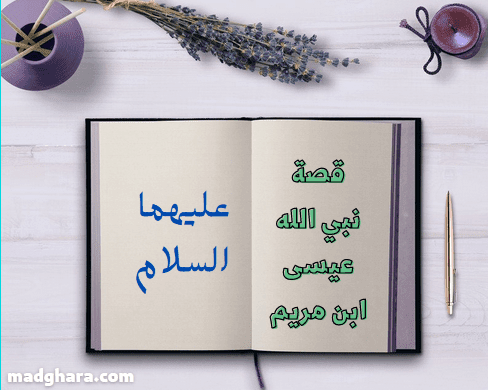 قصة
نبي الله
عيسى
ابن مريم
عليهما
السلام
madghara.com